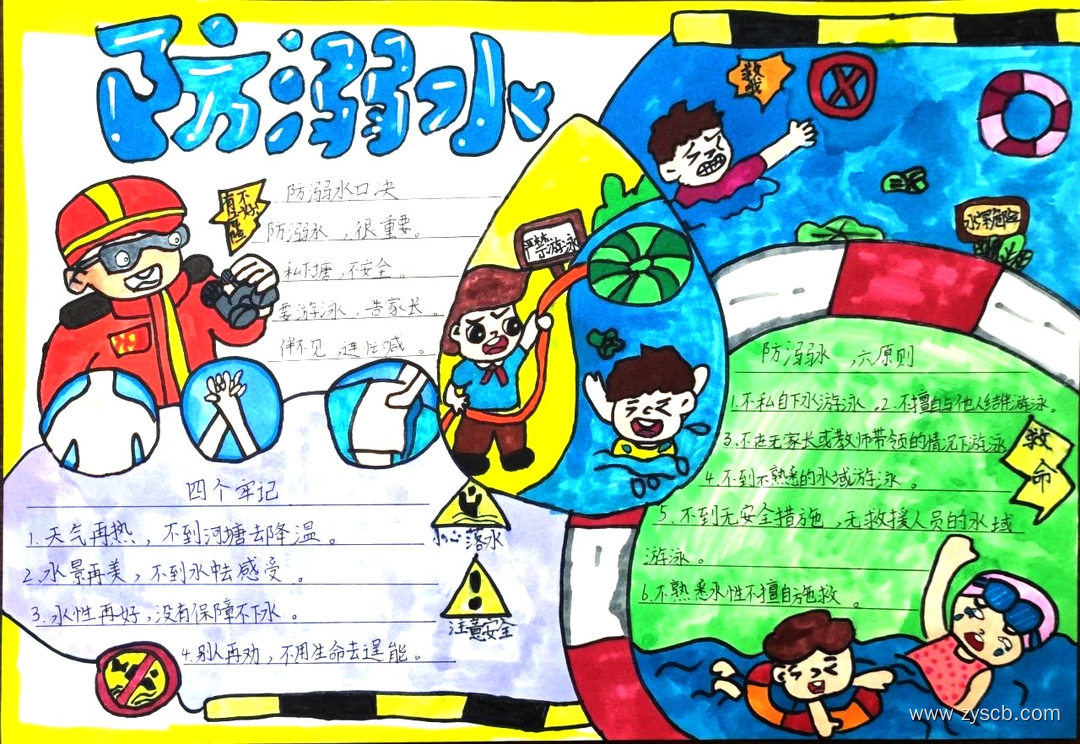 防溺水
有不
危险
防溺水口决
防溺水，很重要。
私下塘，不安全。
要游泳，告家长。
伴不见，速忙喊。
严禁游泳
救救
水深危险
四个牢记
1.天气再热，不到河塘去降温。
2.水景再美，不到水中去感受。
3.水性再好，没有保障不下水。
4.别人再劝，不用生命去逞能。
小心落水
注意安全
防溺水，六原则
1.不私自下水游泳。2.不擅自与他人结伴游泳。
3.不在无家长或教师带领的情况下游泳
4.不到不熟悉的水域游泳。
5.不到无安全措施，无救援人员的水域
游泳。
6.不熟悉水性不擅自施救。
救命
www.zyscb.com